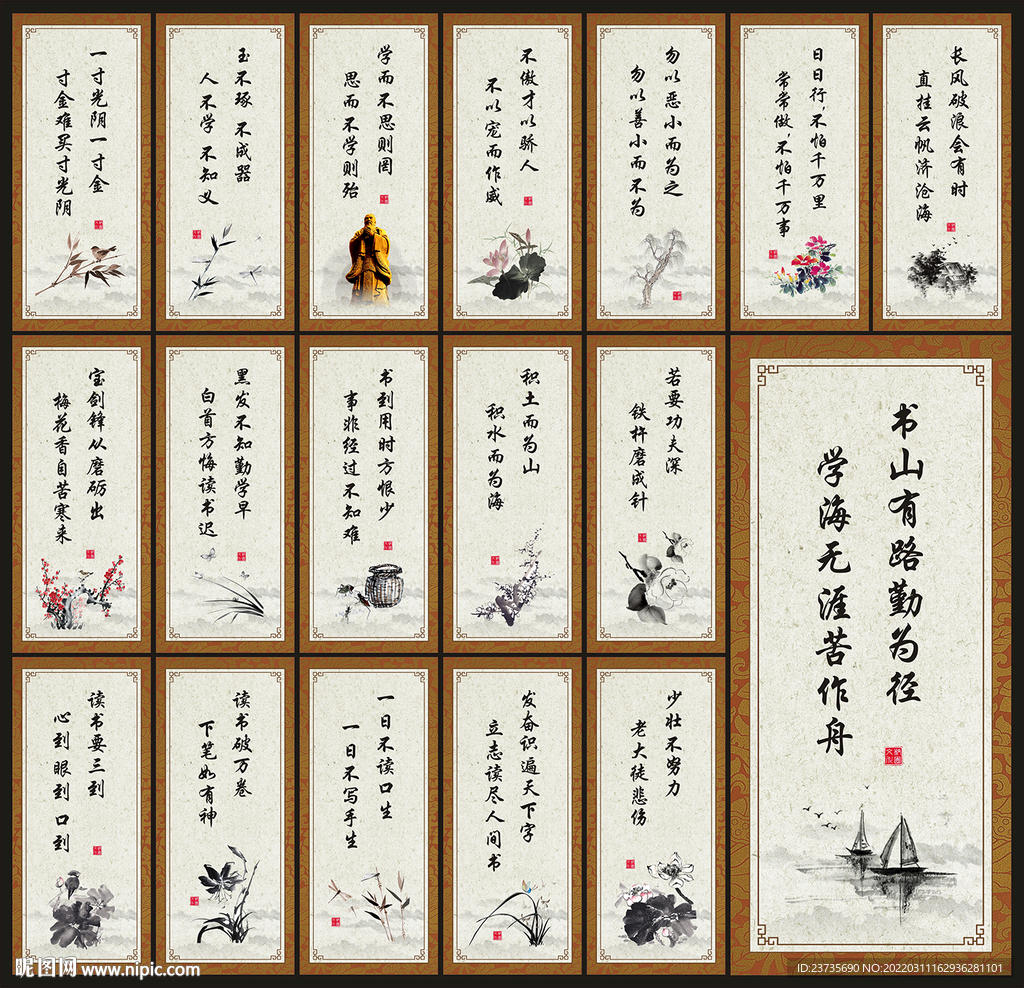 一寸光阴一寸金
寸金难买寸光阴
玉不琢 不成器
人不学 不知义
学而不思则罔
思而不学则殆
不傲才以骄人
不以宠而作威
勿以恶小而为之
勿以善小而不为
日日行，不怕千万里
常常做，不怕千万事
长风破浪会有时
直挂云帆济沧海
宝剑锋从磨砺出
梅花香自苦寒来
黑发不知勤学早
白首方悔读书迟
书到用时方恨少
事非经过不知难
积土而为山
积水而为海
若要功夫深
铁杵磨成针
书山有路勤为径
学海无涯苦作舟
读书要三到
心到 眼到 口到
读书破万卷
下笔如有神
一日不读口生
一日不写手生
发奋识遍天下字
立志读尽人间书
少壮不努力
老大徒悲伤
昵图网 www.nipic.com
ID:23735690 NO:20220311162936281101